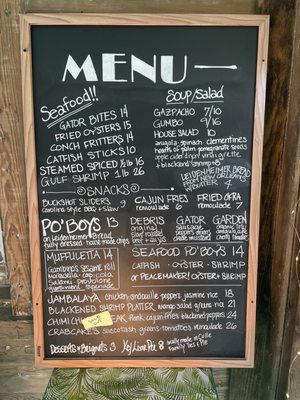 MENU
Seafood!!
GATOR BITES 14
FRIED OYSTERS 15
CONCH FRITTERS 14
CATFISH STICKS 10
STEAMED SPICED 1/2 lb 16
GULF SHRIMP 1 lb 26
SOUP/SALAD
GAZPACHO 7/10
GUMBO 9/16
HOUSE SALAD 10
arugula spinach clementines
hearts of palm pomegranate seeds
apple cider vinaigrette
+ blackened shrimp 8
LEIDENHEIMER BREAD
FROM NEW ORLEANS
+ BUTTER 4
SNACKS
BUCKSHOT SLIDERS
carolina style BBQ + slaw 9
CAJUN FRIES
remoulade 6
FRIED OKRA
remoulade 9
PO'BOYS 13
on Leidenheimer Bread
fully dressed house made chips
DEBRIS
original
roast beef
+ au jus
GATOR
sausage
peppers onions
creole mustard
GARDEN
MUFFULETTA 14
Gambino's sesame roll
mortadella capicola
Salami provolone
SEAFOOD PO'BOYS 14
CATFISH · OYSTER · SHRIMP
or PEACEMAKER! OYSTER + SHRIMP
JAMBALAYA chicken andouille peppers jasmine rice 18
BLACKENED SHRIMP PLATTER mango salad greens 21
CHIMICHURRI STEAK flank cajun fries blackened peppers 24
CRABCAKES succotash greens tomatoes remoulade 26
Desserts Beignets 3
Key Lime Pie 8
Family Ties & Pie